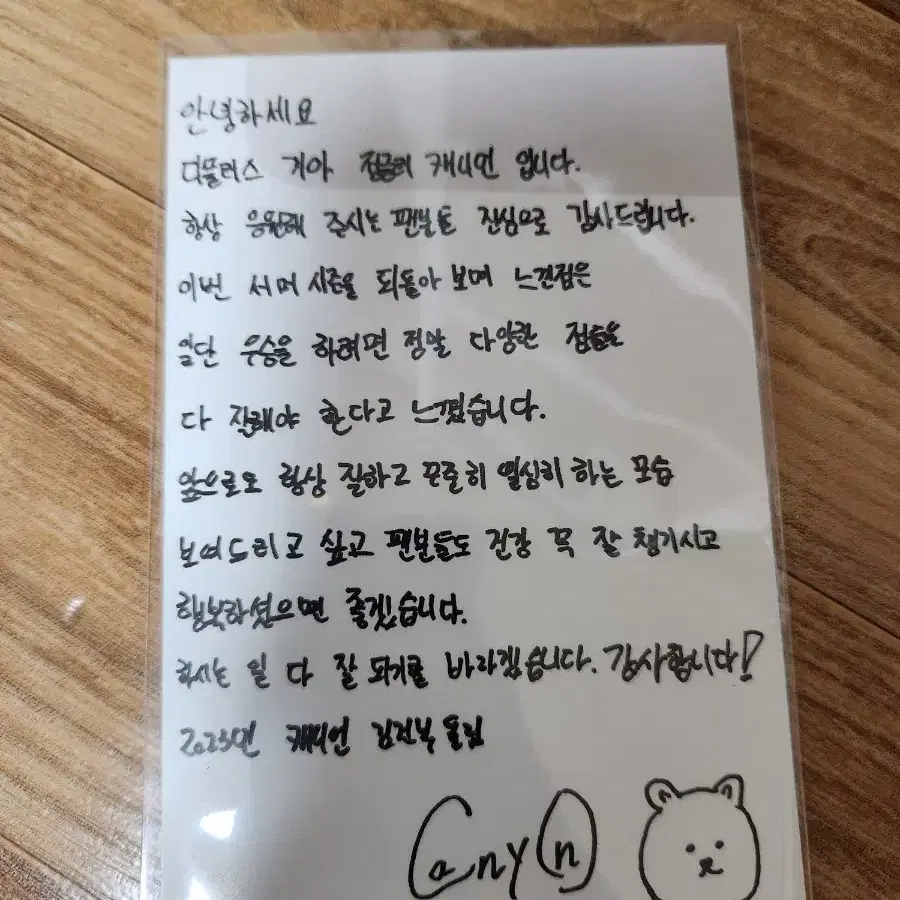 안녕하세요
디플러스 기아 정글러 캐니언 입니다.
항상 응원해 주시는 팬분들 진심으로 감사드립니다.
이번 서머 시즌을 되돌아 보며 느낀점은
일단 우승을 하려면 정말 다양한 점들을
다 잘해야 한다고 느꼈습니다.
앞으로도 항상 잘하고 꾸준히 열심히 하는 모습
보여드리고 싶고 팬분들도 건강 꼭 잘 챙기시고
행복하셨으면 좋겠습니다.
하시는 일 다 잘 되기를 바라겠습니다. 감사합니다!
2023년 캐니언 김건부 올림
Canyon